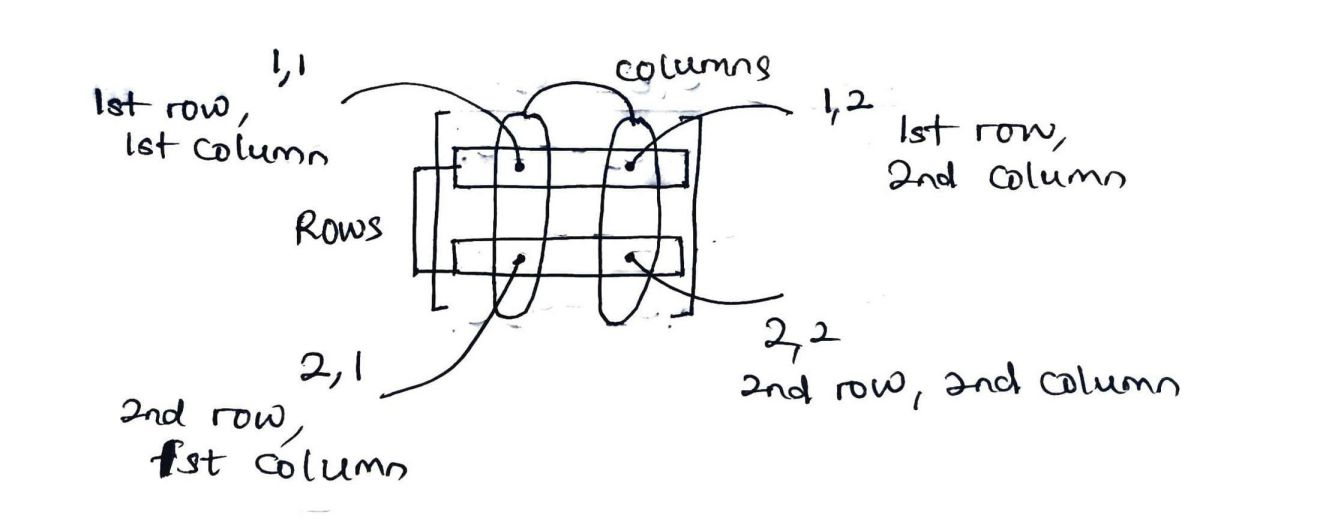 1,1
1st row,
1st column
columns
1,2
1st row,
2nd column
Rows
2,1
2nd row,
1st column
2,2
2nd row, 2nd column